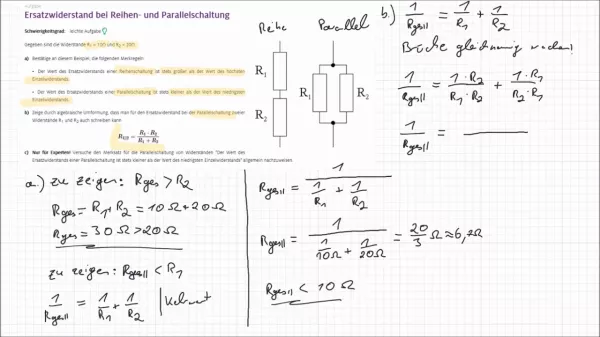 Aufgabe
Ersatzwiderstand bei Reihen- und Parallelschaltung
Schwierigkeitsgrad: leichte Aufgabe
Gegeben sind die Widerstände
a) Bestätige an diesem Beispiel die folgenden Merkregeln:
• Der Wert des Ersatzwiderstands einer Reihenschaltung ist stets größer als der Wert des höchsten
Einzelwiderstands.
• Der Wert des Ersatzwiderstands einer Parallelschaltung ist stets kleiner als der Wert des niedrigsten
Einzelwiderstands.
b) Zeige durch algebraische Umformung, dass man für den Ersatzwiderstand bei der Parallelschaltung zweier
Widerstände R₁ und R₂ auch schreiben kann
R = R₁ · R₂ / (R₁ + R₂)
c) Nur für Experten! Versuche den Merksatz für die Parallelschaltung von Widerständen: "Der Wert des
Ersatzwiderstands einer Parallelschaltung ist stets kleiner als der Wert des niedrigsten Einzelwiderstandes" allgemein nachzuweisen.
Reihe
R₁
R₂
Parallel
R₁
R₂
b.) 1/Rges|| = 1/R₁ + 1/R₂
Brüche gleichnamig machen!
1/Rges|| = 1·R₂/R₁·R₂ + 1·R₁/R₂·R₁
1/Rges|| =
a.) zu zeigen: Rges > R₂
Rges = R₁ + R₂ = 10 Ω + 20 Ω
Rges = 30 Ω > 20 Ω
zu zeigen: Rges|| < R₁
1/Rges|| = 1/R₁ + 1/R₂ | Kehrwert
Rges|| = 1/(1/R₁ + 1/R₂)
Rges|| = 1/(1/10Ω + 1/20Ω) = 20/3 Ω ≈ 6,7Ω
Rges|| < 10 Ω